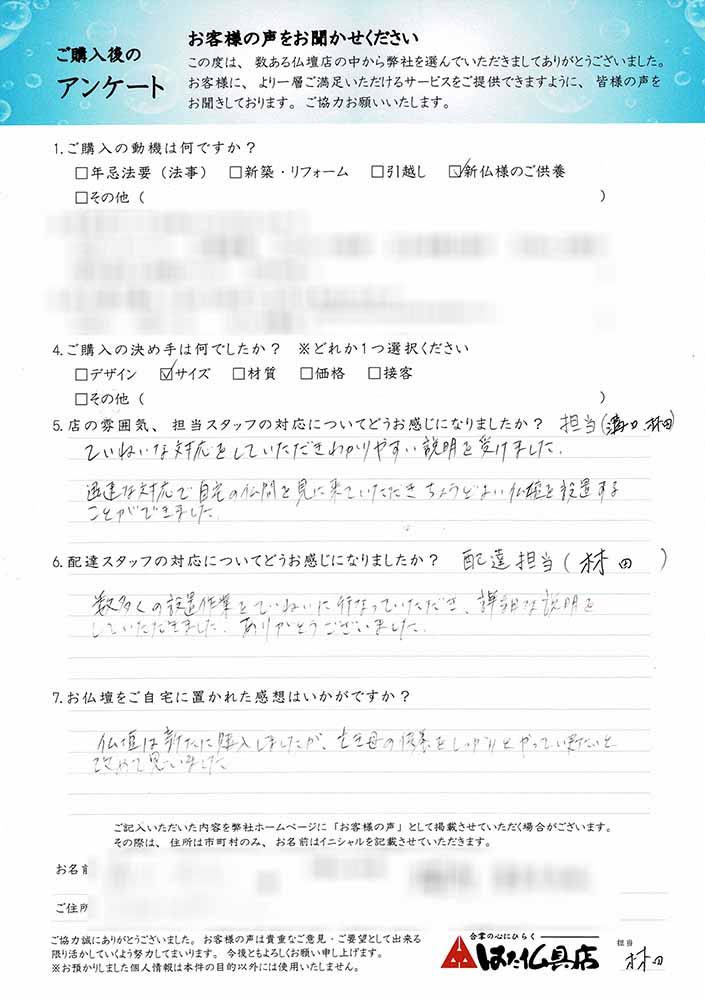 ご購入後の
アンケート
お客様の声をお聞かせください
この度は、数ある仏壇店の中から弊社を選んでいただきましてありがとうございました。
お客様に、より一層ご満足いただけるサービスをご提供できますように、皆様の声を
お聞きしております。ご協力お願いいたします。
1.ご購入の動機は何ですか？
□年忌法要（法事） □新築・リフォーム □引越し ☑新仏様のご供養
□その他（ ）
4.ご購入の決め手は何でしたか？ ※どれか1つ選択ください
□デザイン ☑サイズ □材質 □価格 □接客
□その他（ ）
5.店の雰囲気、担当スタッフの対応についてどうお感じになりましたか？ 担当(溝口 林田)
ていねいな対応をしていただきわかりやすい説明を受けました。
迅速な対応で自宅の仏間を見に来ていただきちょうどよい仏壇を設置する
ことができました。
6.配達スタッフの対応についてどうお感じになりましたか？ 配達担当(林田)
数多くの設置作業をていねいに行なっていただき、詳細な説明を
していただきました。ありがとうございました。
7.お仏壇をご自宅に置かれた感想はいかがですか？
仏壇は新たに購入しましたが、母の供養をしっかりとやって行きたいと
改めて思いました
ご記入いただいた内容を弊社ホームページに「お客様の声」として掲載させていただく場合がございます。
その際は、住所は市町村のみ、お名前はイニシャルを記載させていただきます。
お名前
ご住所
ご協力誠にありがとうございました。お客様の声は貴重なご意見・ご要望として出来る
限り活かしていくよう努力してまいります。今後ともよろしくお願い申し上げます。
※お預かりしました個人情報は本件の目的以外には使用いたしません。
合掌の心にひらく
はた仏具店
担当
林田